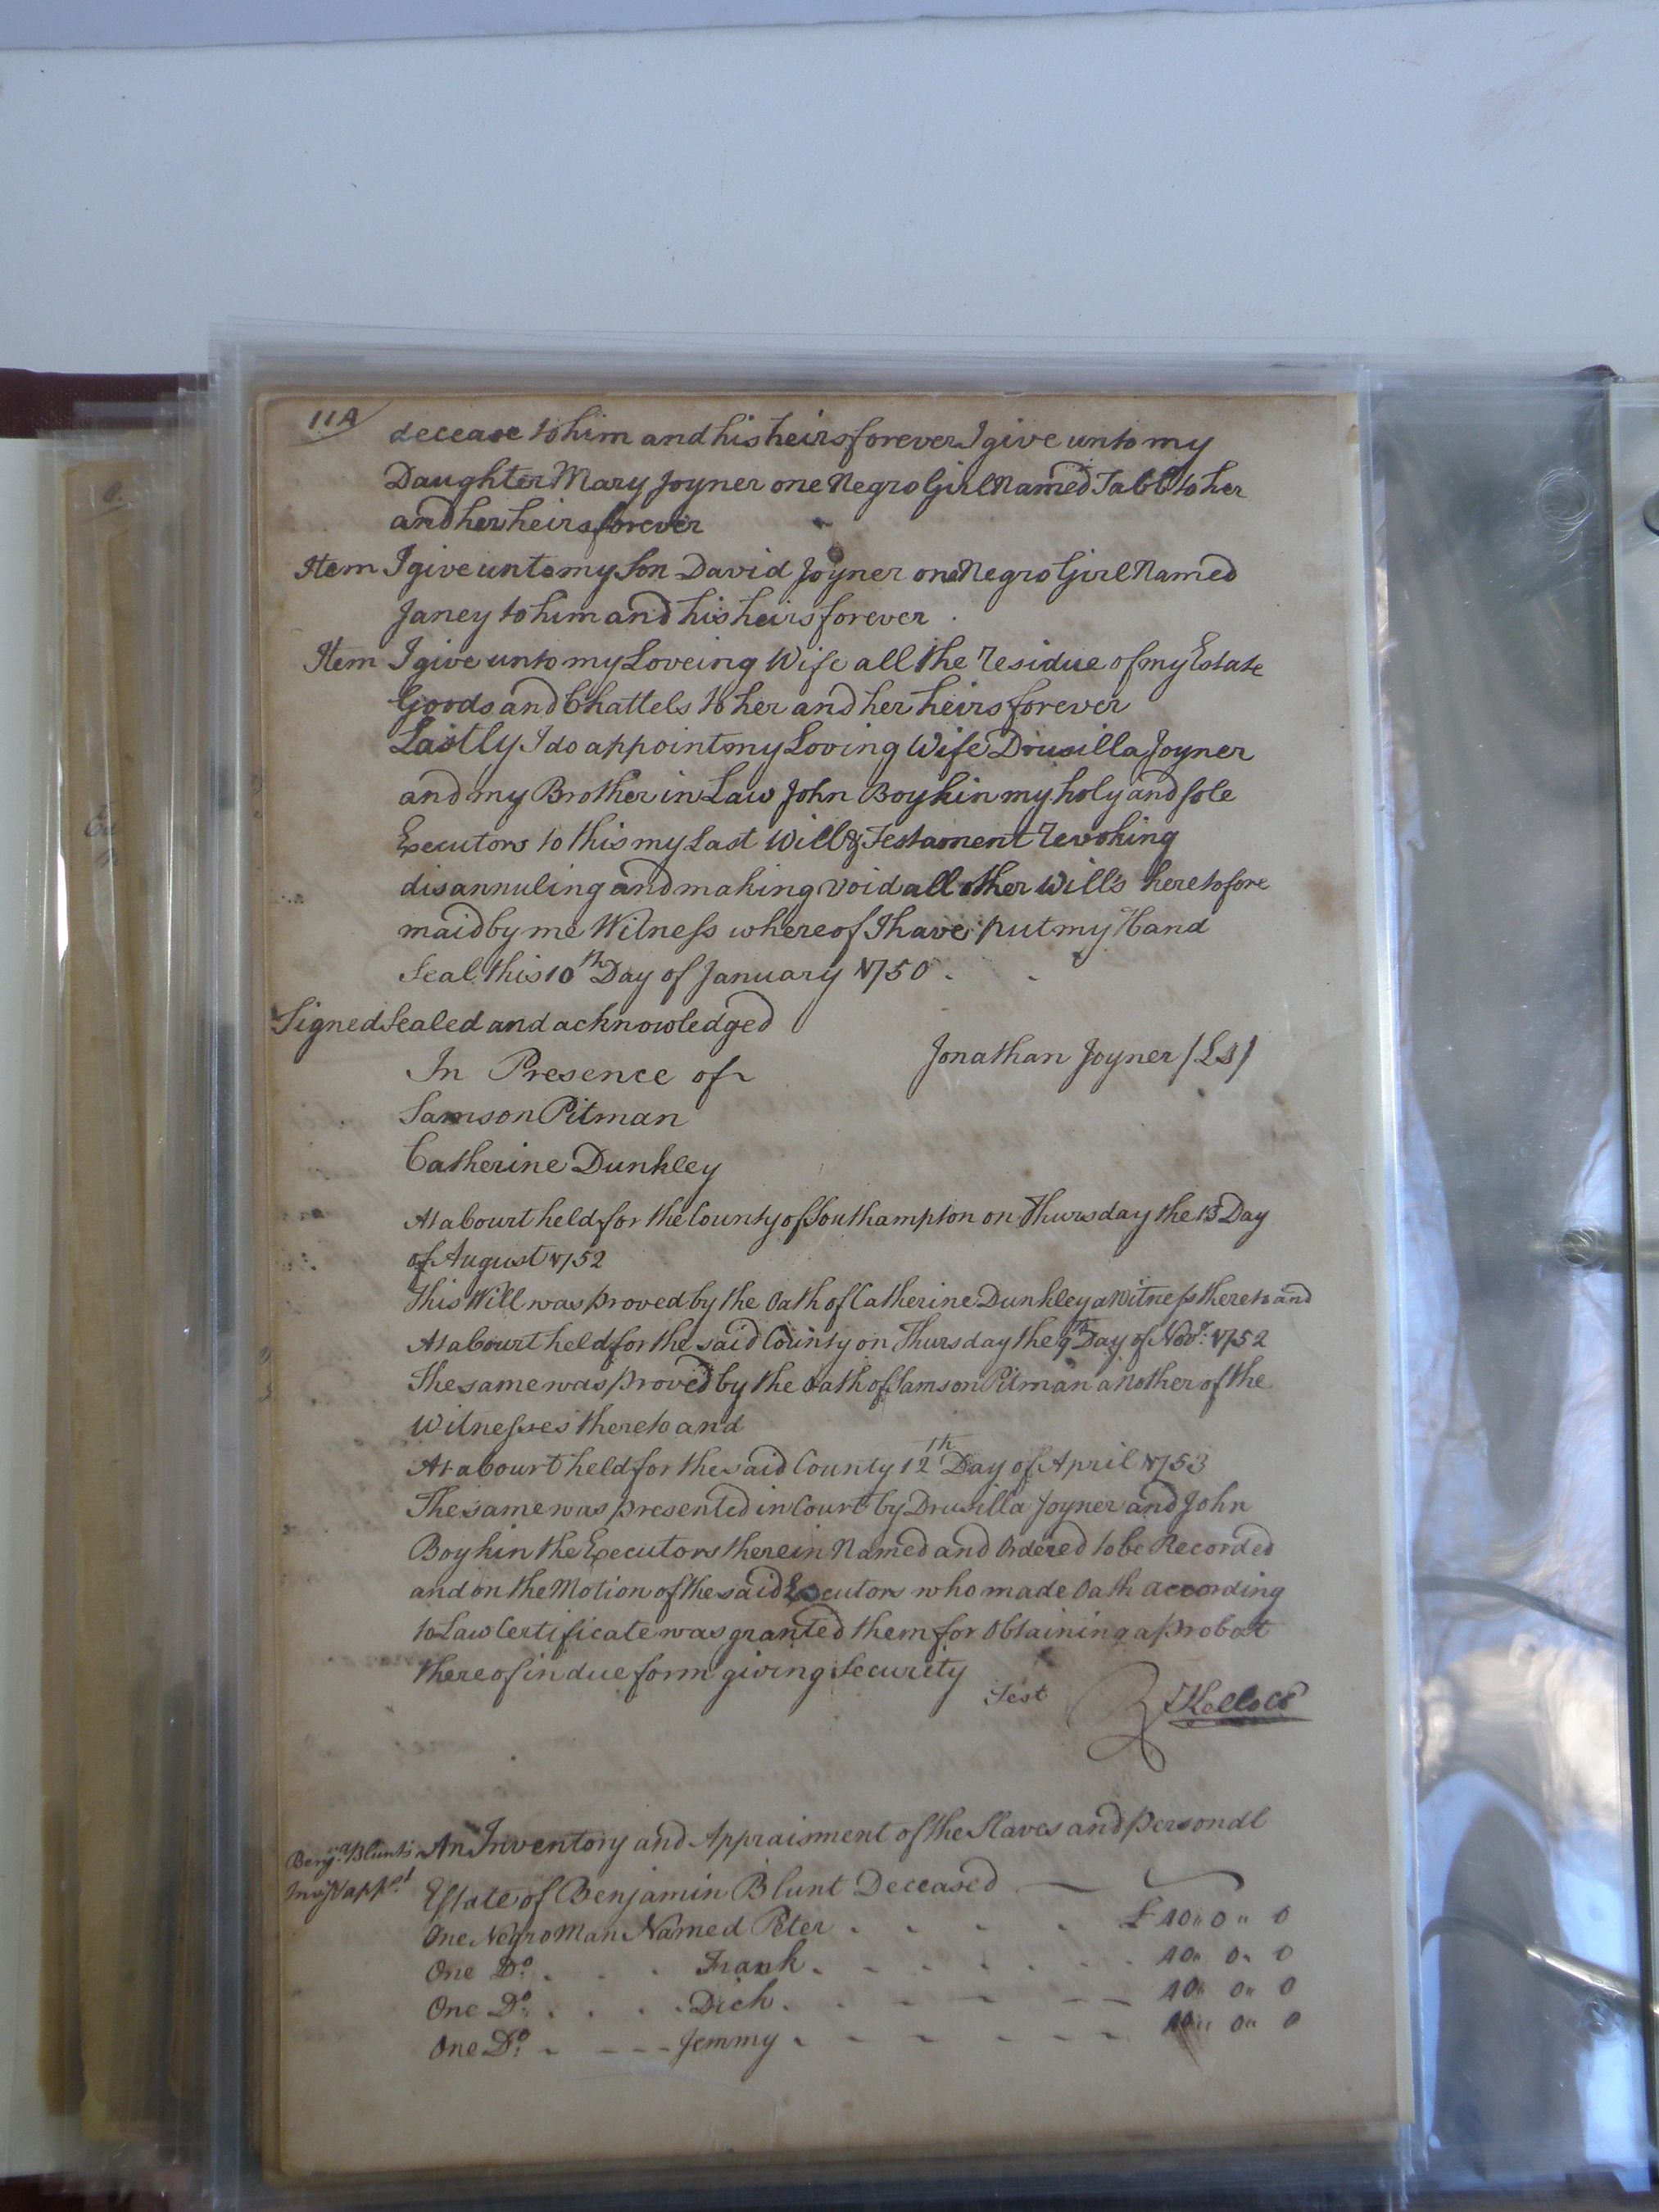 114
decease to him and his heirs forever I give unto my
Daughter Mary Joyner one Negro Girl Named Tabb to her
and her heirs forever
Item I give unto my Son David Joyner one Negro Girl Named
Janey to him and his heirs forever
Item I give unto my Loveing Wife all the residue of my Estate
Goods and Chattels to her and her heirs forever
Lastly I do appoint my Loving Wife Drusilla Joyner
and my Brother in Law John Boykin my holy and sole
Executors to this my Last Will & Testament revoking
disannuling and making void all other Will's heretofore
maid by me Witness whereof I have put my Hand
Seal this 10th Day of January 1750
Signed Sealed and acknowledged
Jonathan Joyner (LS)
In Presence of
Samson Pitman
Catherine Dunkley
At a Court held for the County of Southampton on Thursday the 13 Day
of August 1752
This Will was proved by the Oath of Catherine Dunkley a Witness thereto and
At a Court held for the said County on Thursday the 9th Day of Novr. 1752
The same was proved by the Oath of Samson Pitman another of the
Witnesses thereto and
At a Court held for the said County 12th Day of April 1753
The same was presented in Court by Drusilla Joyner and John
Boykin the Executors therein Named and Ordered to be Recorded
and on the Motion of the said Executors who made Oath according
to Law Certificate was granted them for Obtaining a probat
thereof in due form giving Security
Test R Kello CC
Benja. Blunts An Inventory and Appraisment of the Slaves and personal
Inv & appt. Estate of Benjamin Blunt Deceased
One Negro Man Named Peter £ 40 " 0 " 0
One Do. Frank 40 " 0 " 0
One Do. Dick 40 " 0 " 0
One Do. Jemmy 40 " 0 " 0